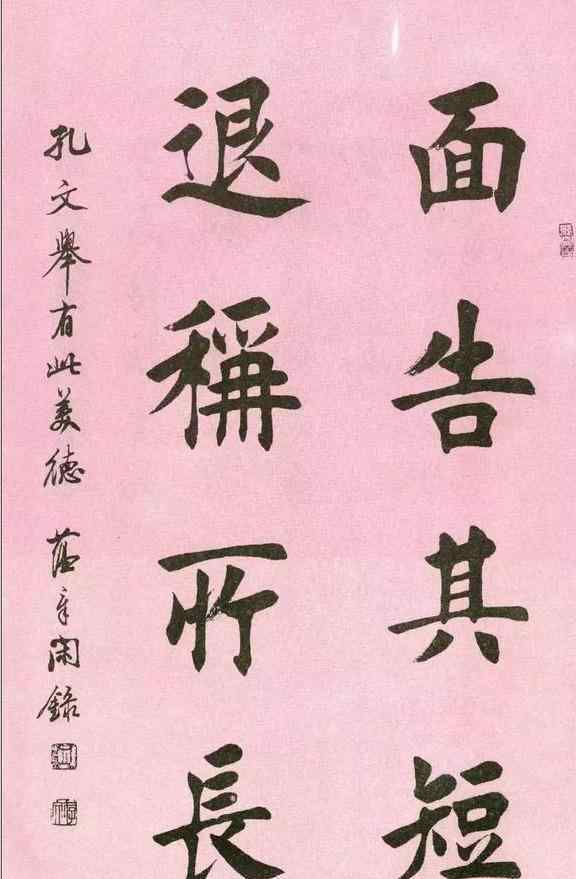 面告其短
退稱所長
孔文舉有此美德